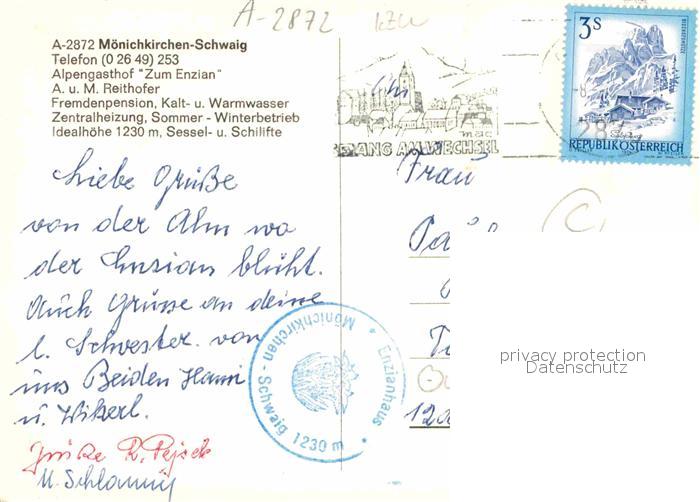 A-2872
A-2872 Mönichkirchen-Schwaig
Telefon (0 26 49) 253
Alpengasthof "Zum Enzian"
A. u. M. Reithofer
Fremdenpension, Kalt- u. Warmwasser
Zentralheizung, Sommer - Winterbetrieb
Idealhöhe 1230 m, Sessel- u. Schilifte
3S
REPUBLIK ÖSTERREICH
AM WECHSEL
Liebe Grüße
von der Alm wo
der Enzian blüht.
Auch Grüsse an deine
l. Schwester von
uns Beiden
u.
Grüße R.
Frau
Mönichkirchen - Schwaig 1230 m
Enzianhaus
privacy protection
Datenschutz